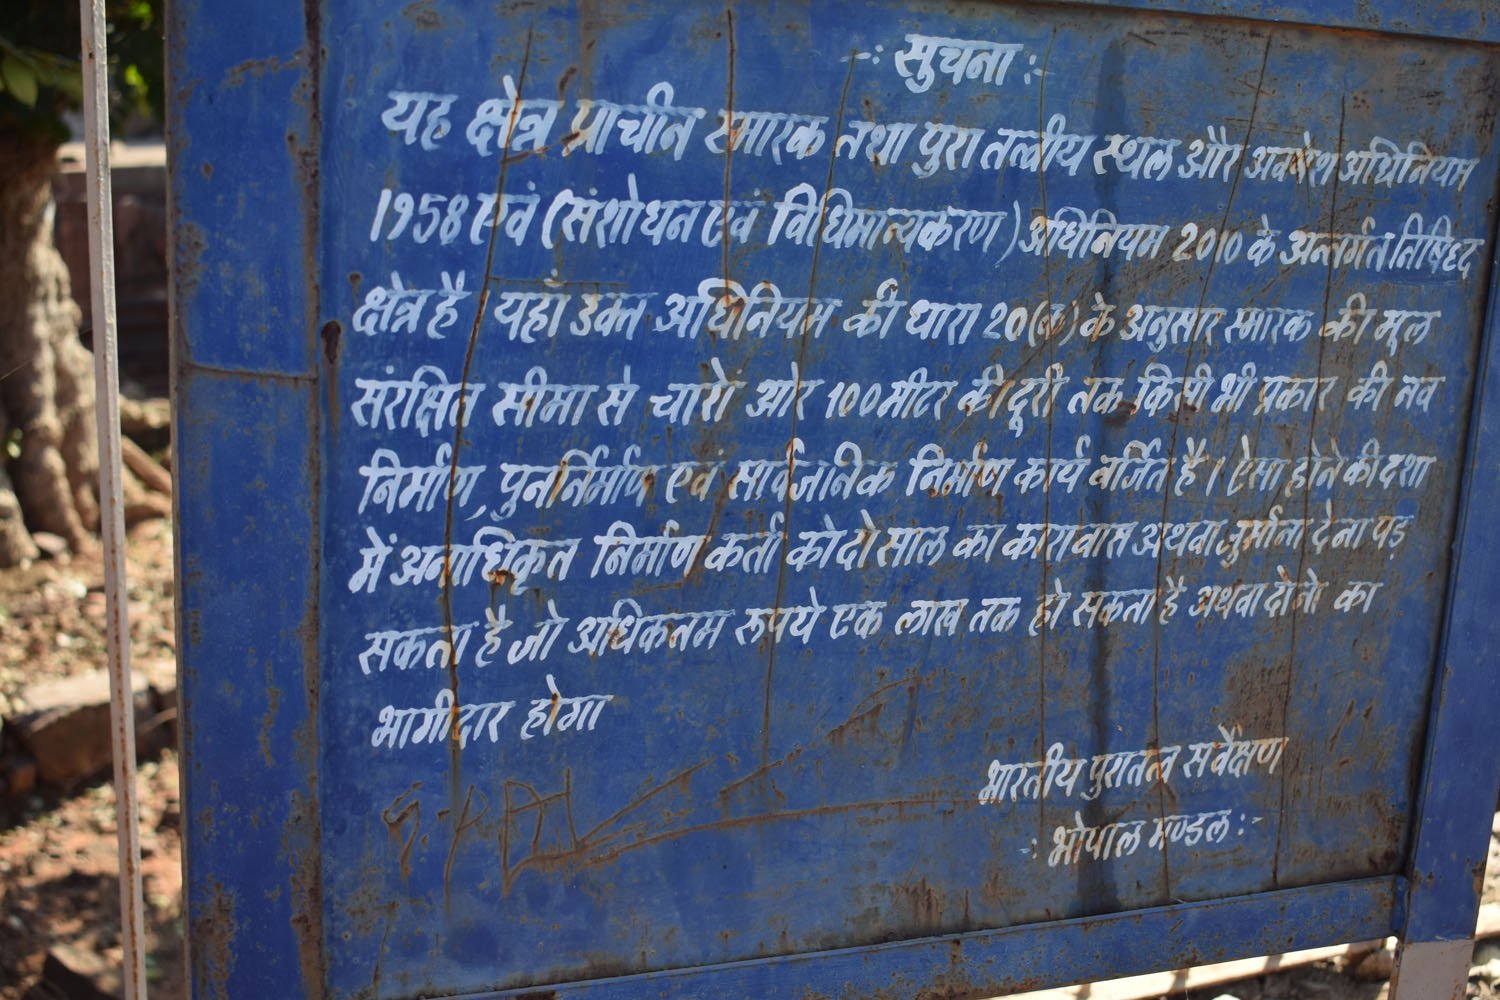 -: सुचना :-
यह क्षेत्र प्राचीन स्मारक तथा पुरा तत्वीय स्थल और अवषेश अधिनियम
1958 एवं (संशोधन एवं विधिमान्यकरण) अधिनियम 2010 के अन्तर्गत निषिध्द
क्षेत्र है यहाँ उक्त अधिनियम की धारा 20(क) के अनुसार स्मारक की मूल
संरक्षित सीमा से चारों ओर 100 मीटर की दूरी तक किसी भी प्रकार की नव
निर्माण, पुनर्निर्माण एवं सार्वजनिक निर्माण कार्य वर्जित है। ऐसा होने की दशा
में अनाधिकृत निर्माण कर्ता को दो साल का कारावास अथवा जुर्माना देना पड़
सकता है जो अधिकतम रूपये एक लाख तक हो सकता है अथवा दोनो का
भागीदार होगा
भारतीय पुरातत्व सर्वेक्षण
-: भोपाल मण्डल :-